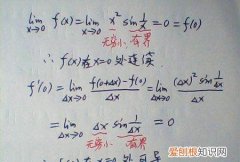 lim x→0 f(x) = lim x→0 x² sin 1/x = 0 = f(0)
无穷小 有界
∴ f(x)在x=0处连续
f'(0) = lim Δx→0 f(0+Δx)-f(0)/Δx = lim Δx→0 (Δx)² sin 1/Δx / Δx
= lim Δx→0 Δx sin 1/Δx = 0
无穷小 有界
爱刨根知识网
www.baogenzhishi.com